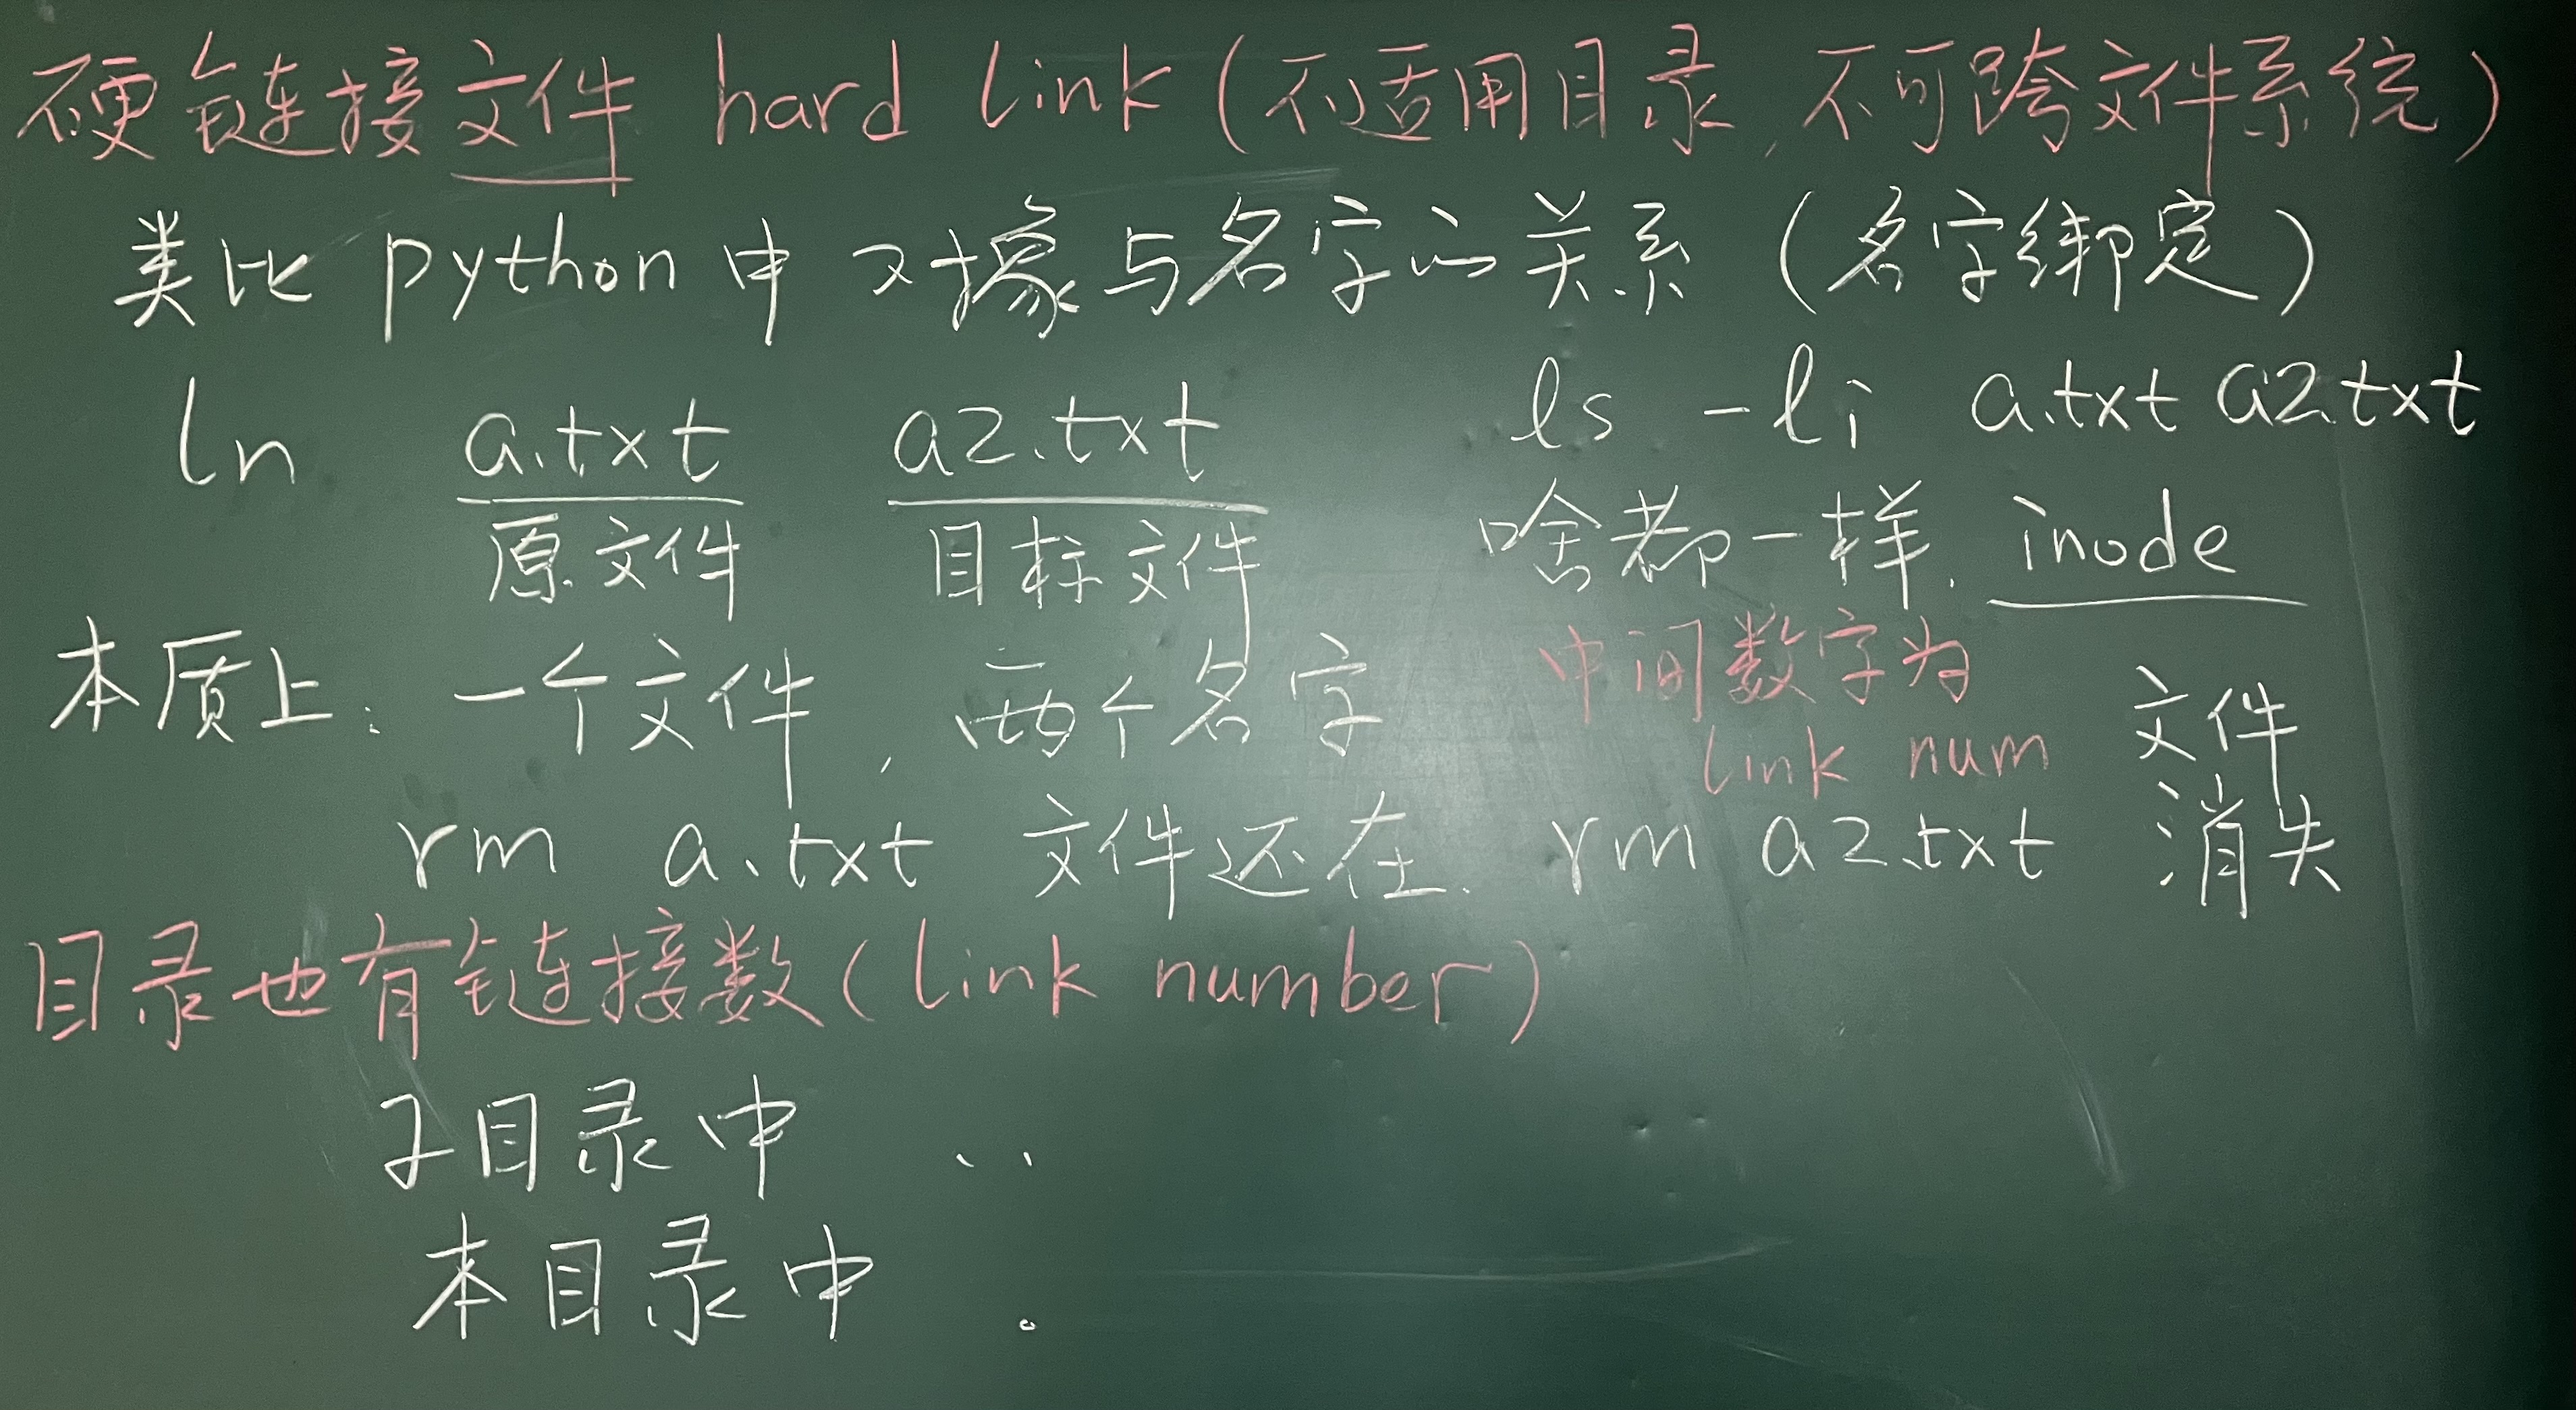 硬链接文件 hard link (不适用目录, 不可跨文件系统)
类比 python 中 对象与名字的关系 (名字绑定)
ln a.txt a2.txt ls -li a.txt a2.txt
原文件 目标文件 啥都一样. inode
本质上: 一个文件, 两个名字 中间数字为
link num 文件
rm a.txt 文件还在. rm a2.txt 消失
目录也有链接数 (link number)
子目录中 ..
本目录中 .